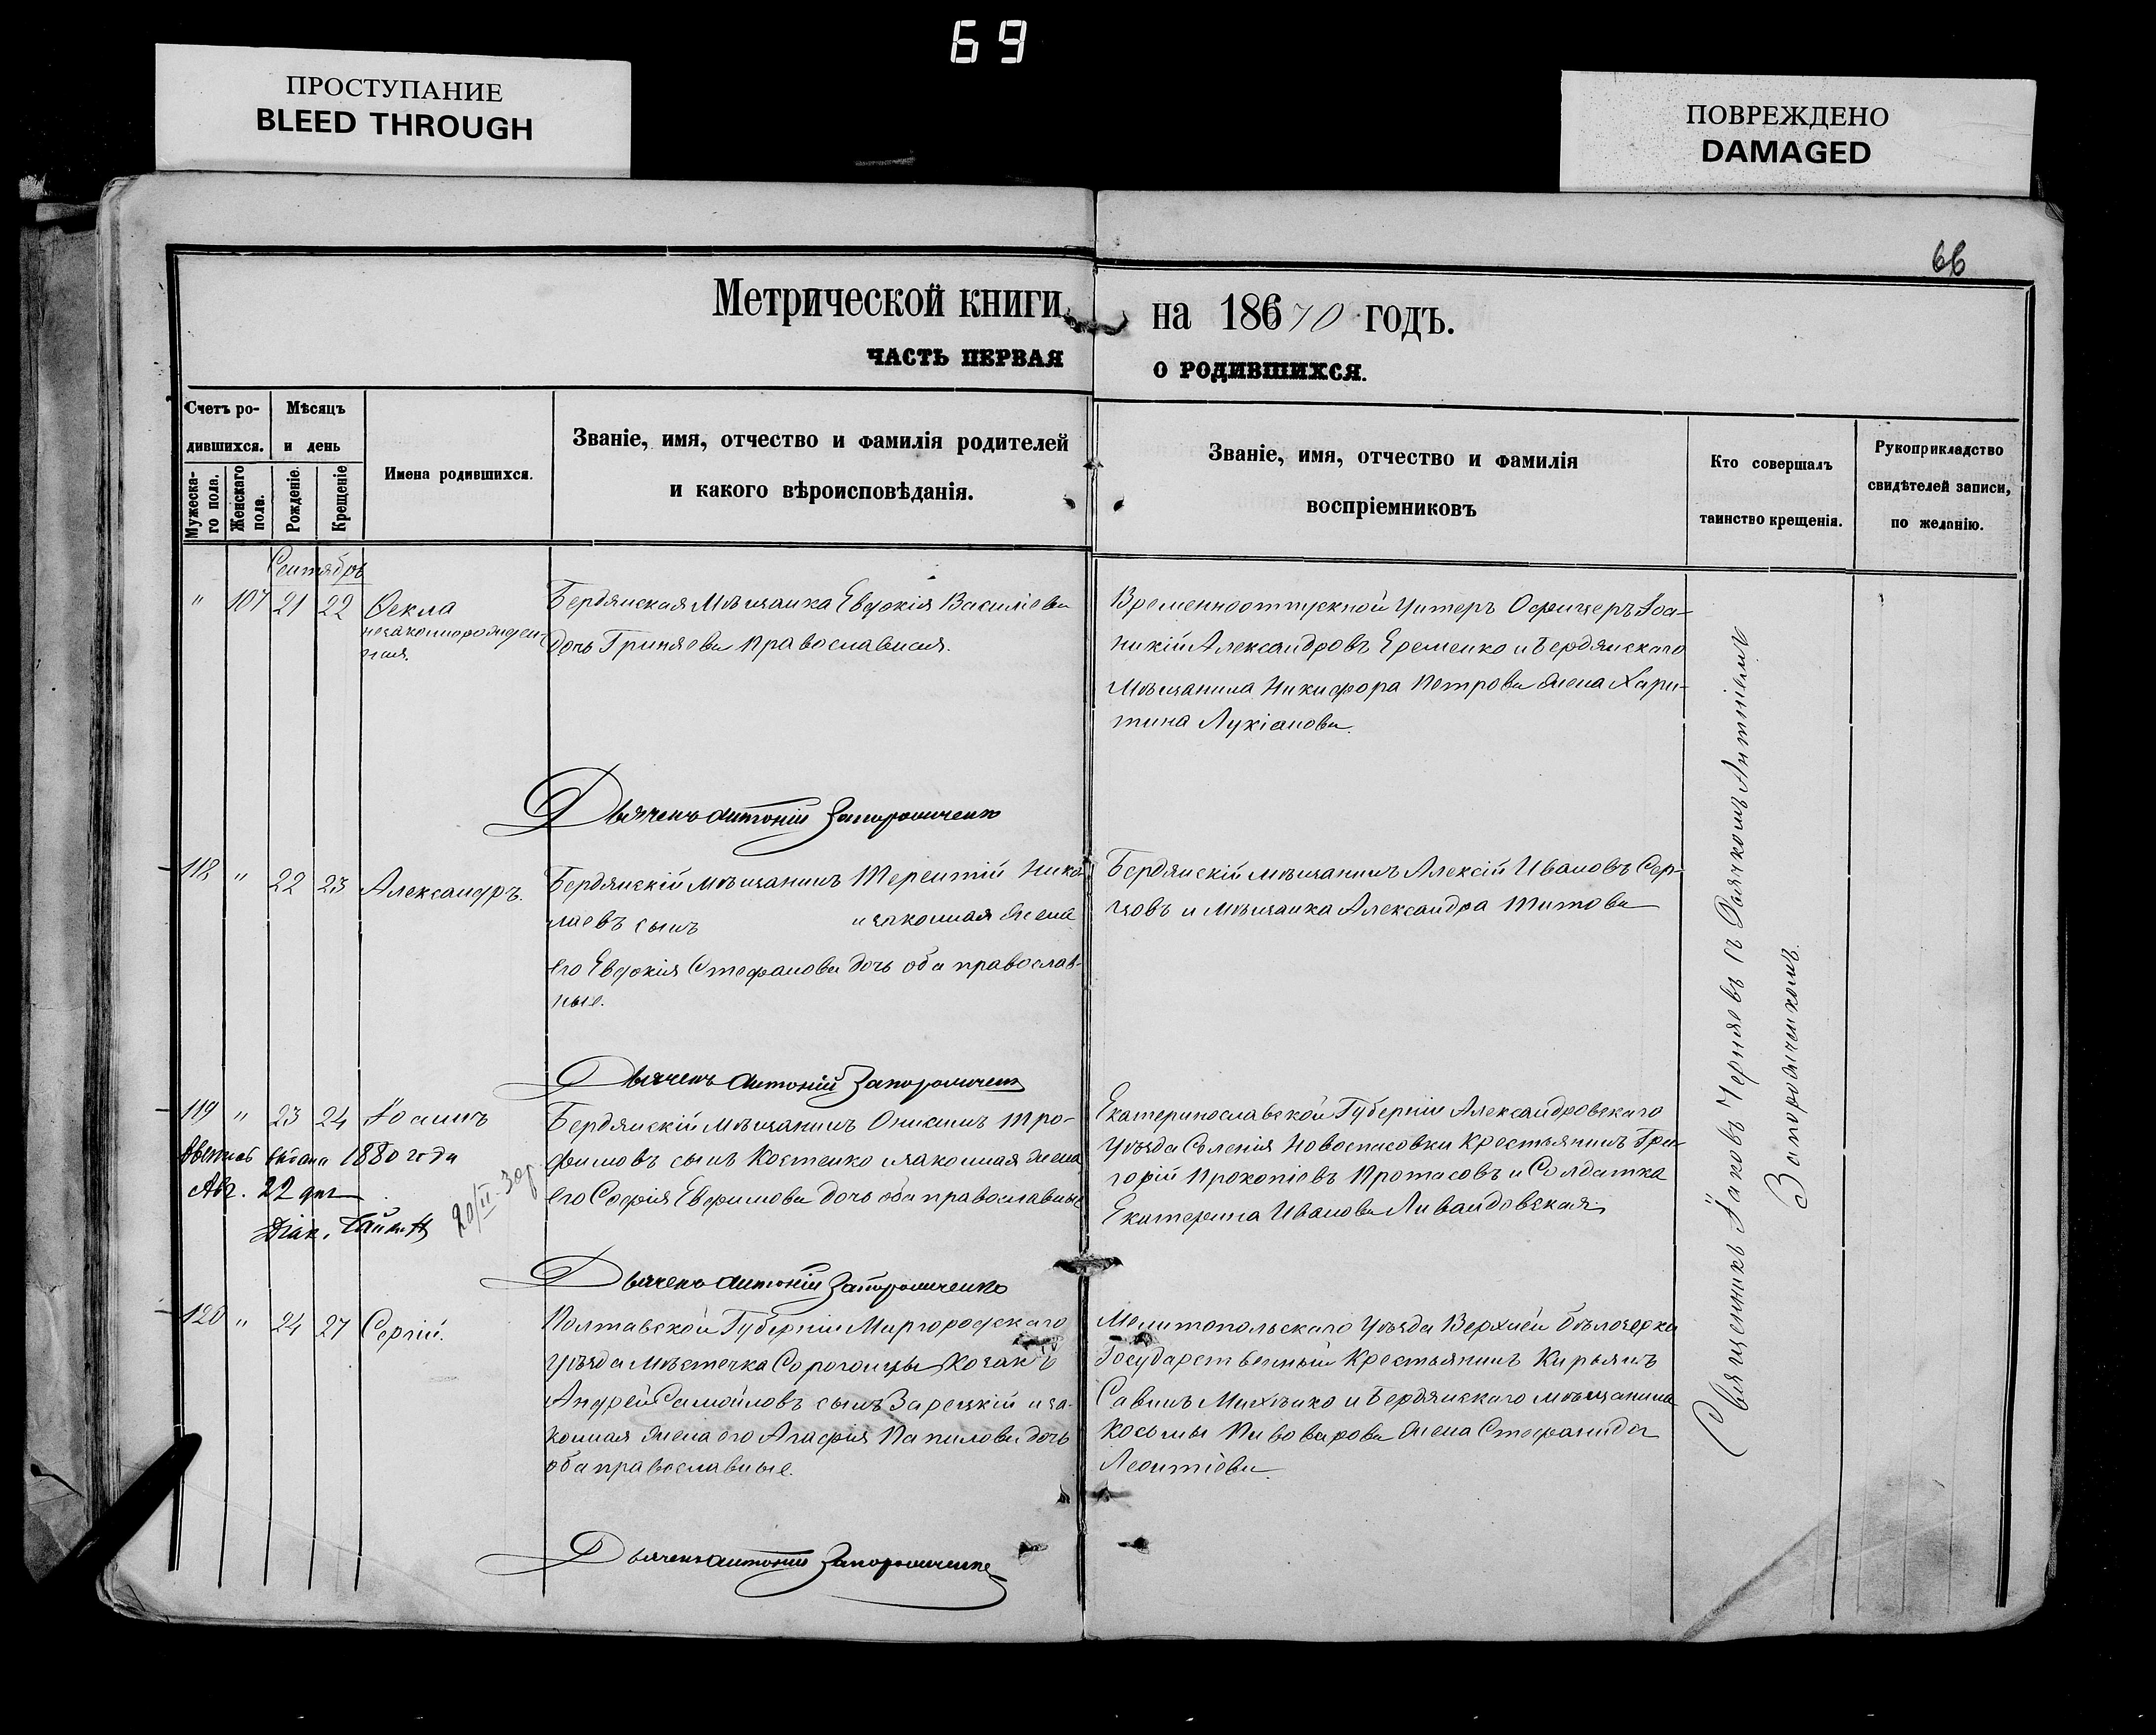 69
ПРОСТУПАНИЕ
BLEED THROUGH
ПОВРЕЖДЕНО
DAMAGED
66
Метрической книги на 18670 годъ.
ЧАСТЬ ПЕРВАЯ О РОДИВШИХСЯ.
Счетъ ро-
дившихся.
Мужеска-
го пола.
Женскаго
пола.
Мѣсяцъ
и день
Рожденіе.
Крещеніе
Имена родившихся.
Званіе, имя, отчество и фамилія родителей
и какого вѣроисповѣданія.
Званіе, имя, отчество и фамилія
воспріемниковъ
Кто совершалъ
таинство крещенія.
Рукоприкладство
свидѣтелей записи,
по желанію.
Сентябрь
" 107 21 22 Ѳекла
незаконнорожден-
ная.
Бердянская Мѣщанка Евдокія Василіева
дочь Гриняева Православная.
Временноотпускной Унтеръ Офицеръ Іоа-
никій Александровъ Еременко и Бердянскаго
Мѣщанина Никифора Петрова жена Хари-
тина Лукіанова.
Дьячекъ Антоній Запорожченко
118 " 22 23 Александръ.
Бердянскій мѣщанинъ Терентій Нико
лаевъ сынъ и законная жена
его Евдокія Стефанова дочь оба православ-
ные.
Бердянскій мѣщанинъ Алексій Ивановъ Сер-
гѣевъ и мѣщанка Александра Титова
Дьячекъ Антоній Запорожченко
119 " 23 24 Іоаннъ
выдана 1880 года
Авг. 22 дня
Діак.
20/II-30г.
Бердянскій мѣщанинъ Онисимъ Тро-
фимовъ сынъ Костенко и законная жена
его Софія Евфимова дочь оба православные
Екатеринославской Губерніи Александровскаго
Уѣзда Селенія Новоспасовки Крестьянинъ Гри-
горій Прокопіевъ Протасовъ и Солдатка
Екатерина Иванова Ливандовская
Дьячекъ Антоній Запорожченко
120 " 24 27 Сергій.
Полтавской Губерніи Миргородскаго
уѣзда мѣстечка Сорочинцы Козакъ
Андрей Самойловъ сынъ Зарецкій и за-
конная жена его Агафія Папилова дочь
оба православные.
Мелитопольскаго Уѣзда Верхней Бѣлозерки
Государственный Крестьянинъ Кирьянъ
Савинъ и Бердянскаго мѣщанина
Косьмы Пивоварова жена Стефанида
Леонтіева.
Дьячекъ Антоній Запорожченко
Священникъ Іаковъ Черняевъ съ Дьячкомъ Антоніемъ
Запорожченкомъ.